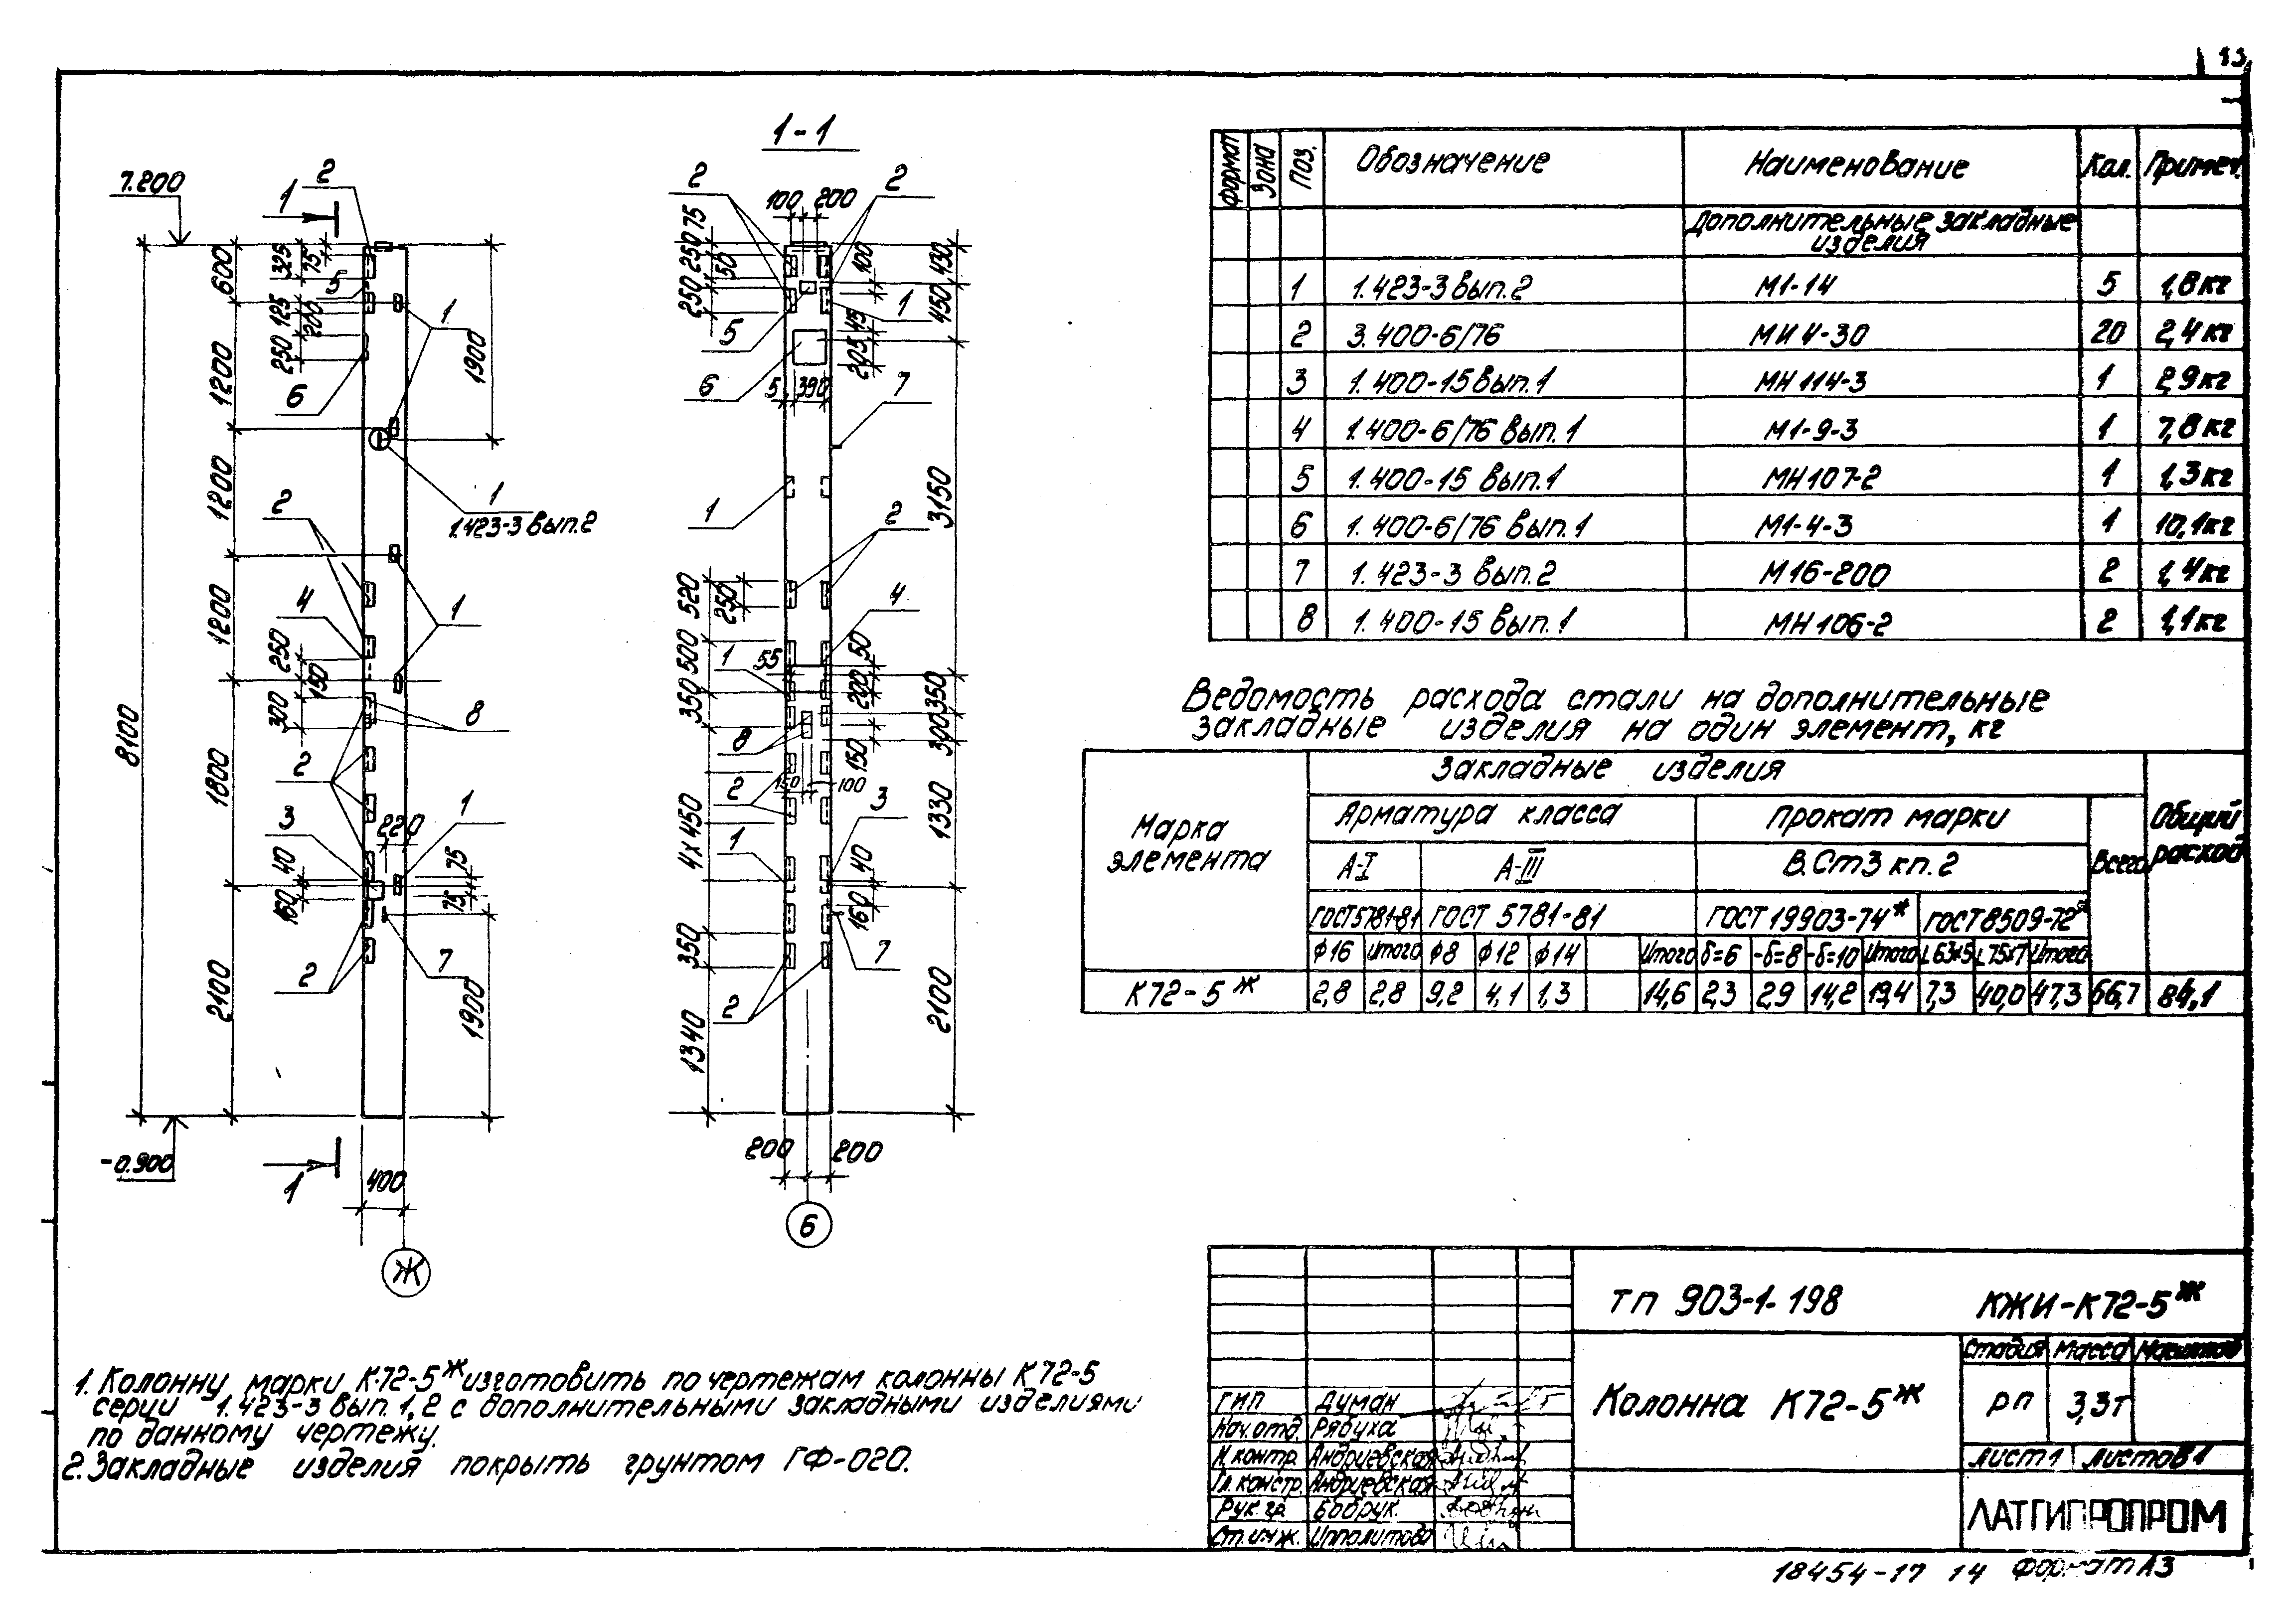 13
1-1
7.200
1
2
8100
600
1200
1200
1200
1800
2100
325
75
5
125
200
250
6
1
1900
1
1.423-3 вып.2
2
4
250
150
300
8
1
2
3
220
1
40
160
75
75
2
7
1900
-0.900
1
400
Ж
2
2
100
200
75
250
50
250
100
430
450
1
5
45
205
6
5
390
7
3150
1
2
520
250
4
500
55
50
1
200
350
350
8
300
150
150
100
2
3
1330
4x450
1
40
160
7
350
2
1340
2100
200
200
6
Формат
Зона
Поз.
Обозначение
Наименование
Кол.
Примеч.
Дополнительные закладные
изделия
1 1.423-3 вып.2 М1-14 5 1,8кг
2 3.400-6/76 МИ 4-30 20 2,4кг
3 1.400-15 вып.1 МН 114-3 1 2,9кг
4 1.400-6/76 вып.1 М1-9-3 1 7,8кг
5 1.400-15 вып.1 МН 107-2 1 1,3кг
6 1.400-6/76 вып.1 М1-4-3 1 10,1кг
7 1.423-3 вып.2 М16-200 2 1,4кг
8 1.400-15 вып.1 МН 106-2 2 1,1кг
Ведомость расхода стали на дополнительные
закладные изделия на один элемент, кг
Марка
элемента
Закладные изделия
Общий
расход
Арматура класса
Прокат марки
Всего
А-I
А-III
В.Ст3 кп.2
ГОСТ5781-81
ГОСТ 5781-81
ГОСТ 19903-74*
ГОСТ8509-72*
ф16 Итого ф8 ф12 ф14 Итого δ=6 -δ=8 -δ=10 Итого L63x5 L75x7 Итого
К72-5ж 2,8 2,8 9,2 4,1 1,3 14,6 2,3 2,9 14,2 19,4 7,3 40,0 47,3 66,7 84,1
1. Колонну марки К72-5ж изготовить по чертежам колонны К72-5
серии 1.423-3 вып. 1,2 с дополнительными закладными изделиями
по данному чертежу.
2. Закладные изделия покрыть грунтом ГФ-020.
ТП 903-1-198
КЖИ-К72-5ж
Колонна К72-5ж
Стадия Масса Масштаб
РП 3,3т
Лист 1 Листов 1
ЛАТГИПРОПРОМ
ГИП Думан
Нач.отд. Рябуха
Н.контр. Андриевская
Гл.констр. Андриевская
Рук.гр. Бобрук.
Ст.инж. Ипполитова
18454-17 14 Формат А3